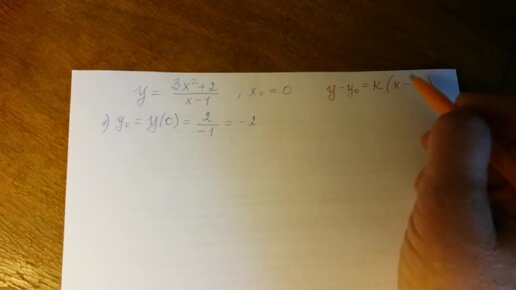 y = \frac{3x^2+2}{x-1} ; x_0 = 0 y - y_0 = k(x -
1) y_0 = y(0) = \frac{2}{-1} = -2